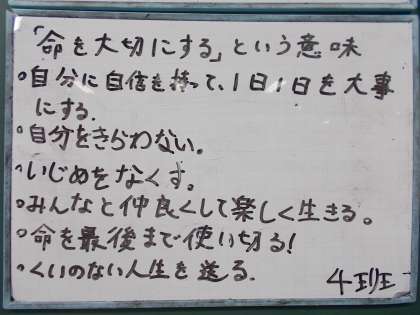 「命を大切にする」という意味
○自分に自信を持って、1日1日を大事
にする.
○自分をきらわない。
○いじめをなくす。
○みんなと仲良くして楽しく生きる。
○命を最後まで使い切る!
○くいのない人生を送る.
4班